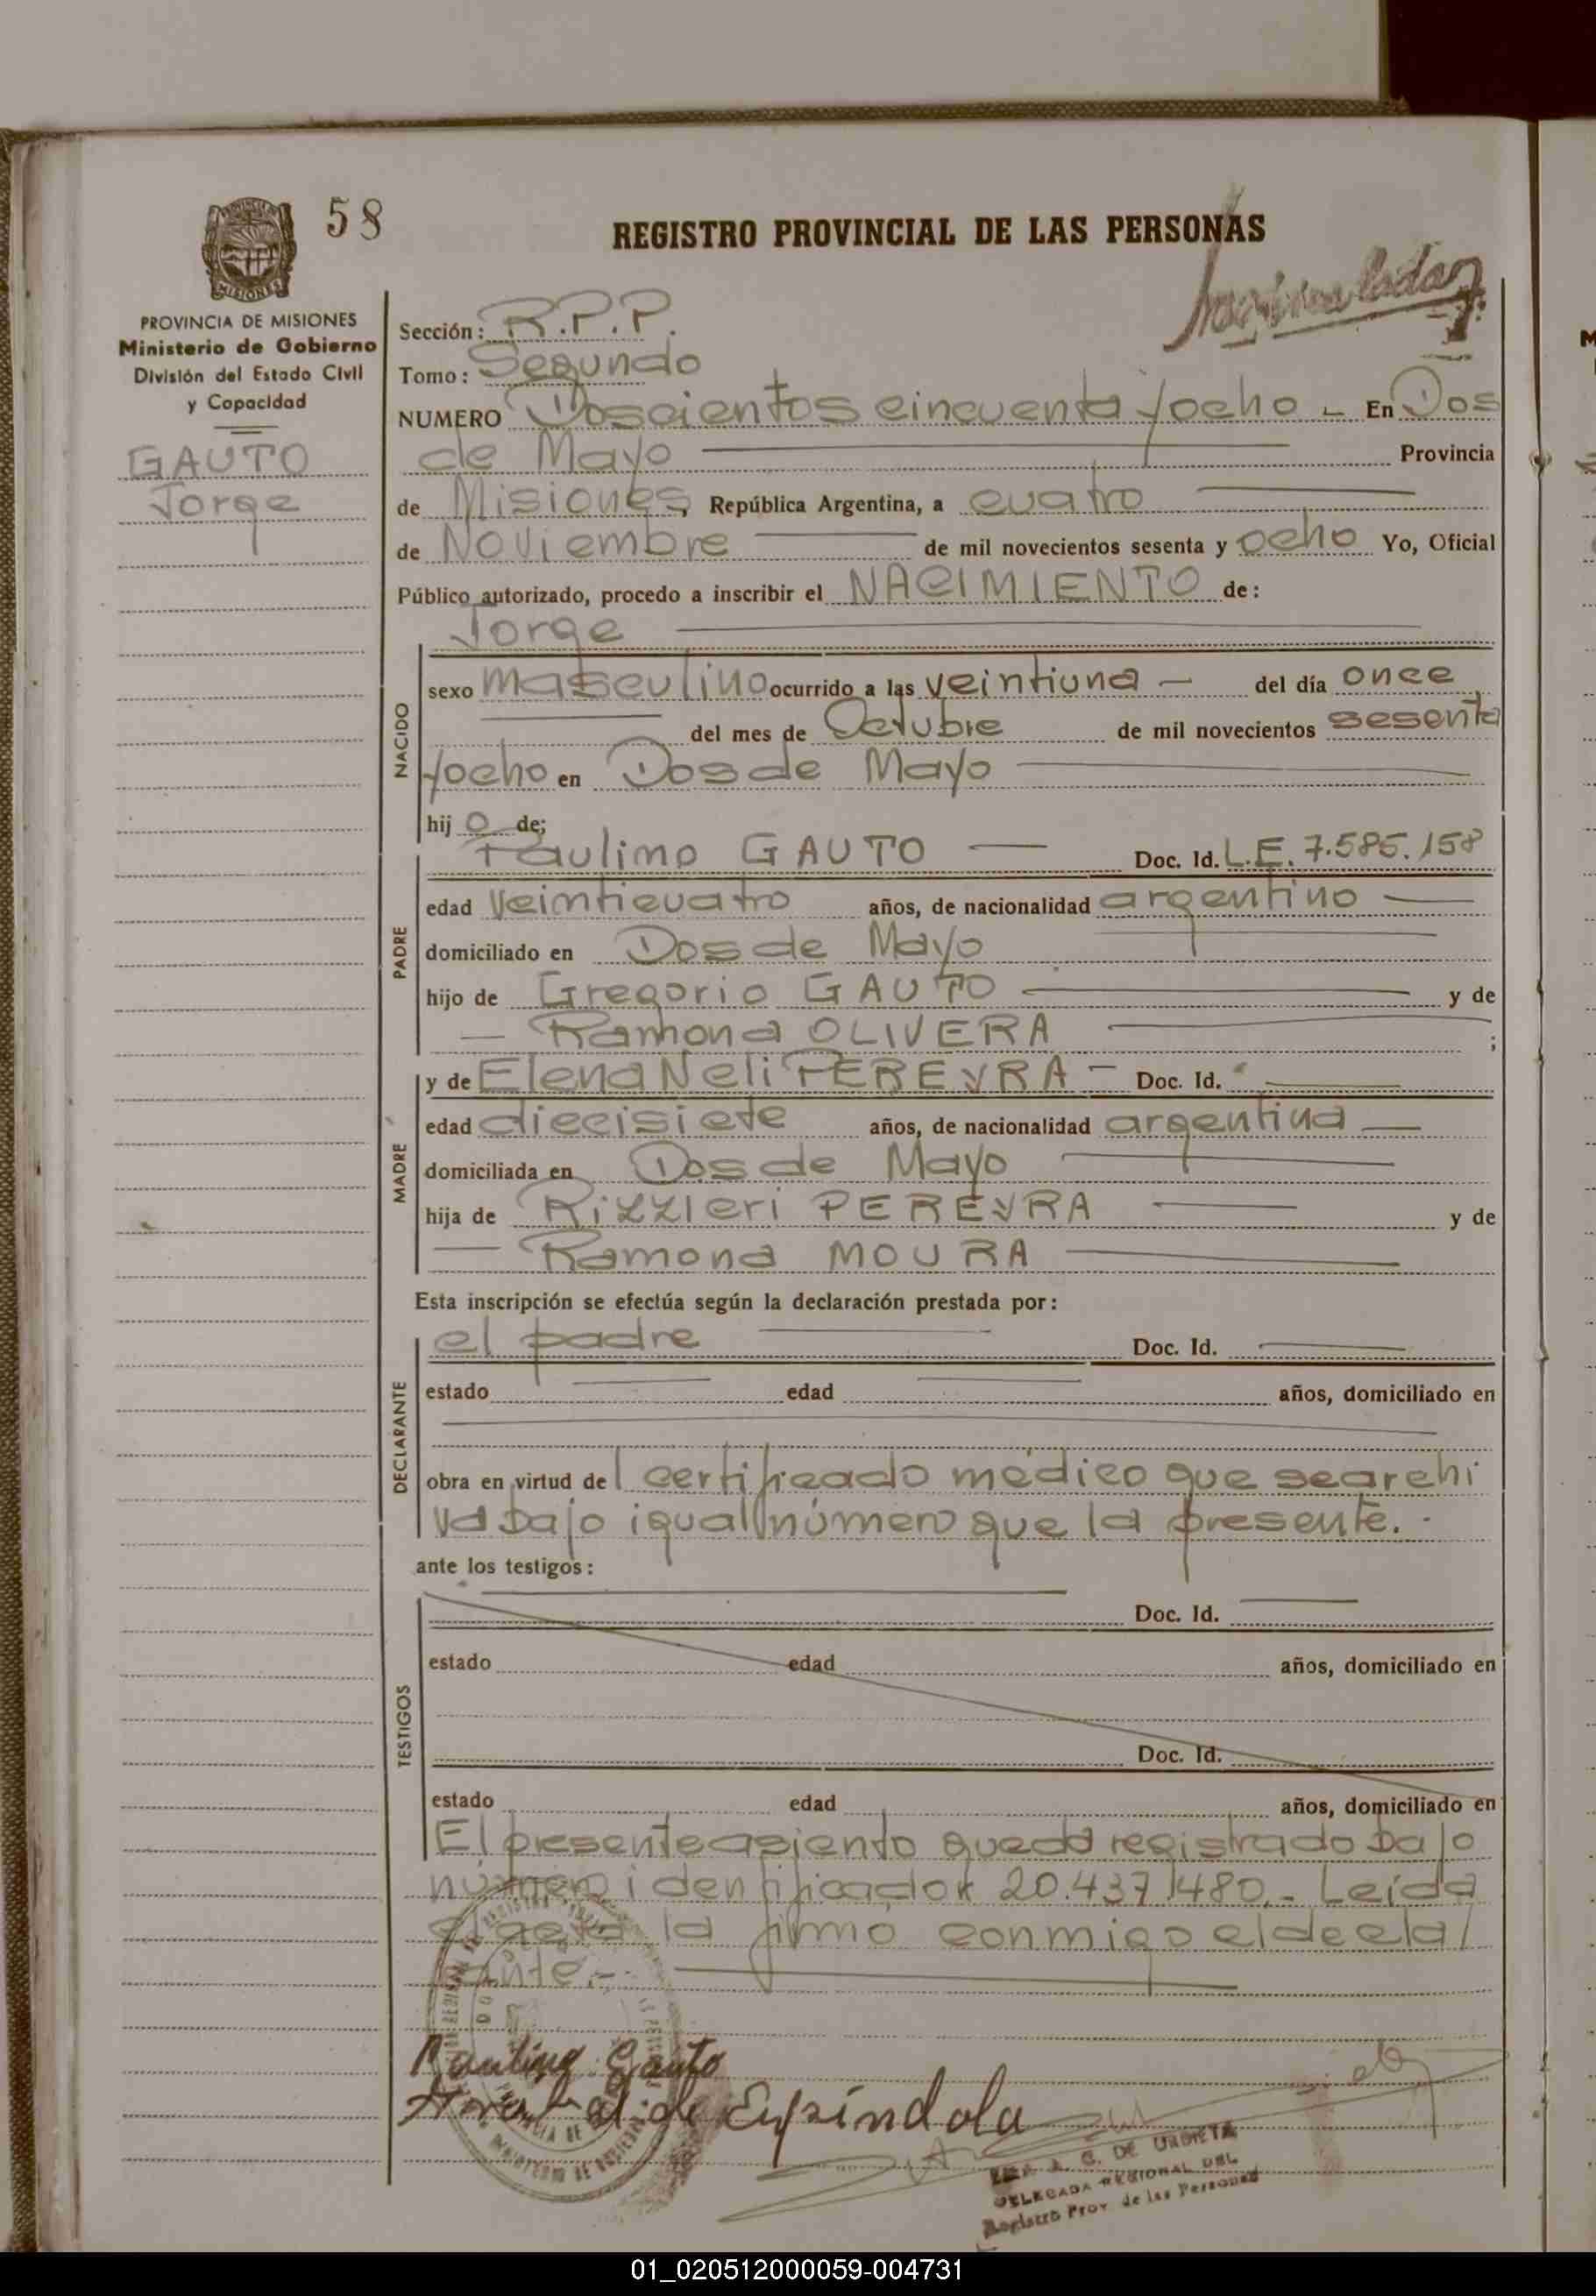 58
REGISTRO PROVINCIAL DE LAS PERSONAS
MISIONES
PROVINCIA DE MISIONES
Ministerio de Gobierno
División del Estado Civil
y Capacidad
GAUTO
Jorge
Sección: R.P.P.
Tomo: Segundo
NUMERO Doscientos cincuenta y ocho - En Dos
de Mayo Provincia
de Misiones, República Argentina, a cuatro
de Noviembre de mil novecientos sesenta y ocho Yo, Oficial
Público autorizado, procedo a inscribir el NACIMIENTO de:
Jorge
NACIDO
sexo masculino ocurrido a las veintiuna — del día once
del mes de Octubre de mil novecientos sesenta
y ocho en Dos de Mayo
hij o de;
PADRE
Paulino GAUTO — Doc. Id. L.E. 7.585.158
edad veinticuatro años, de nacionalidad argentino —
domiciliado en Dos de Mayo
hijo de Gregorio GAUTO y de
— Ramona OLIVERA ;
MADRE
y de Elena Neli PEREYRA - Doc. Id.
edad diecisiete años, de nacionalidad argentina —
domiciliada en Dos de Mayo
hija de Rizzieri PEREYRA y de
— Ramona MOURA
Esta inscripción se efectúa según la declaración prestada por:
DECLARANTE
el padre Doc. Id.
estado edad años, domiciliado en
obra en virtud de l certificado médico que se archi
va bajo igual número que la presente.-
ante los testigos:
TESTIGOS
Doc. Id.
estado edad años, domiciliado en
Doc. Id.
estado edad años, domiciliado en
El presente asiento queda registrado bajo
número identificador 20.437.480.- Leída
el acta la firmó conmigo el decla/
rante.-
Paulino Gauto
Espíndola
A. G. DE URDIETA
DELEGADA REGIONAL DEL
Registro Prov. de las Personas
01_020512000059-004731